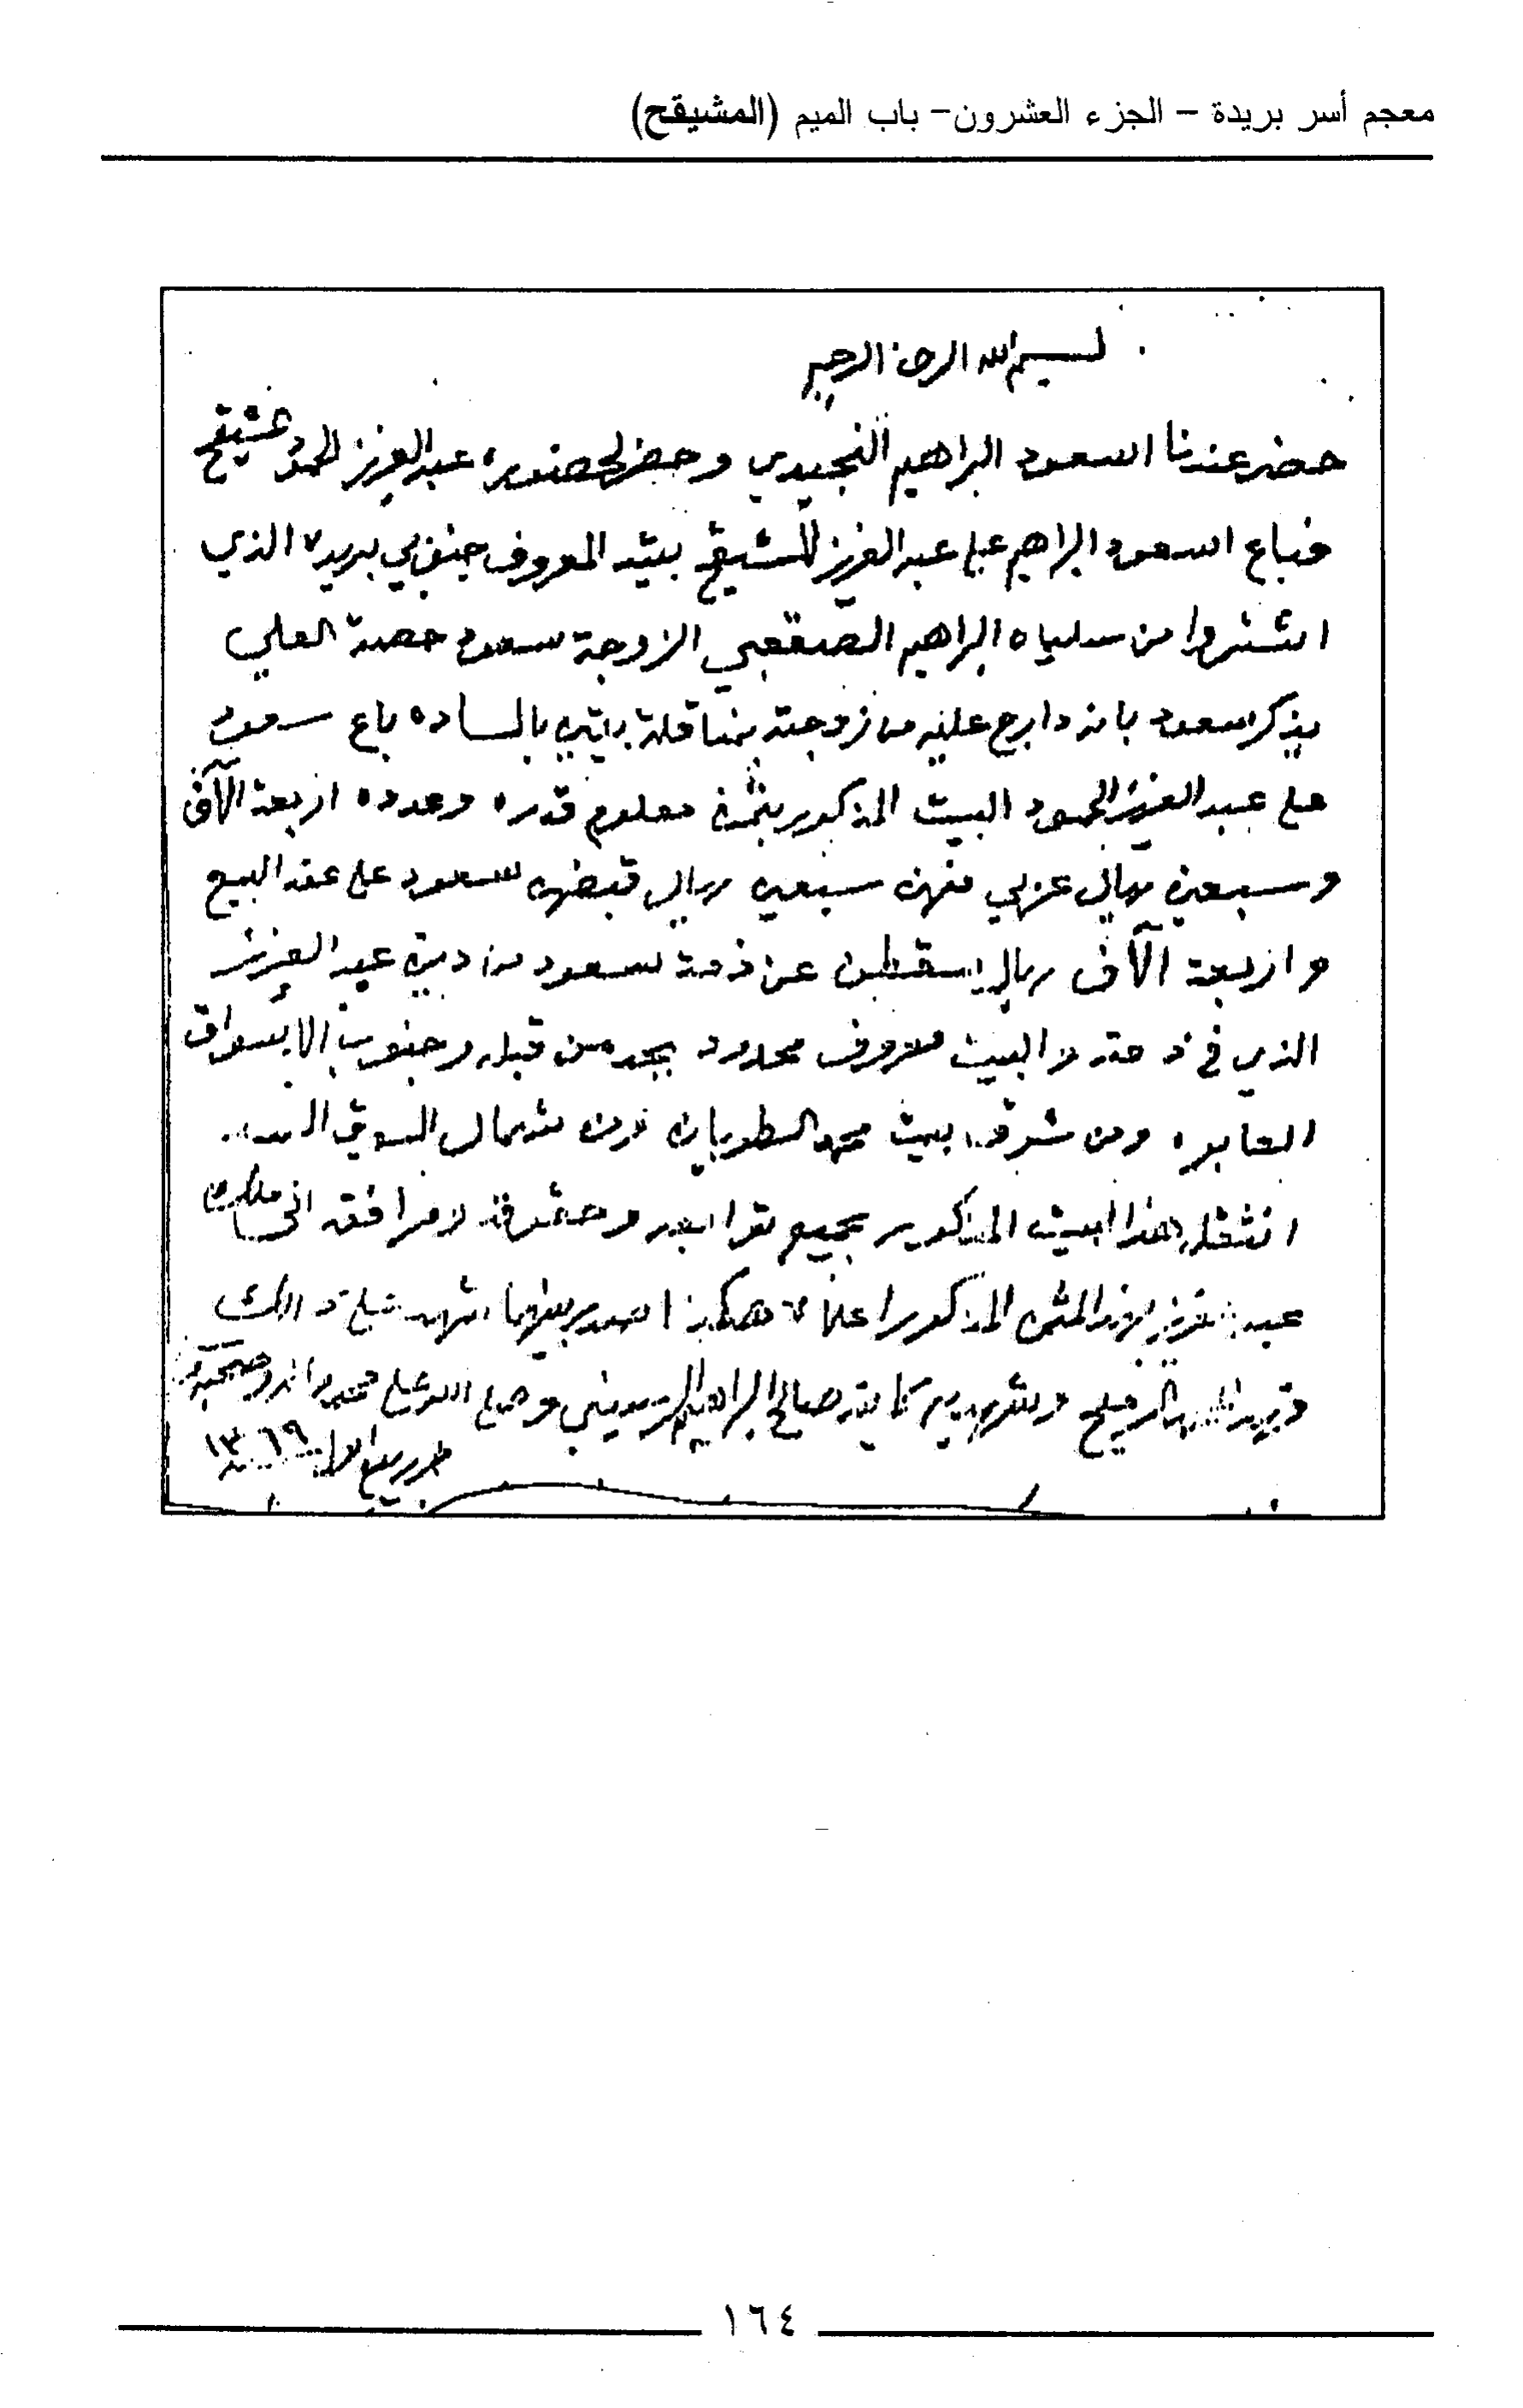 معجم أسر بريدة – الجزء العشرون– باب الميم (المشيقح)
بسم الله الرحمن الرحيم
حضر عندنا اسعود البراهيم النجيدي وحضر لحضوره عبدالعزيز الحمود المشيقح
فباع اسعود البراهيم على عبدالعزيز المشيقح بيته المعروف جنوبي بريده الذي
اشتروا من سليمان البراهيم الصقعبي الزوجة سعود حصة العلي
يذكر سعود بانه دارج عليه من زوجته بمناقلة بيتين بالساده باع سعود
على عبدالعزيز الحمود البيت المذكور بثمن معلوم قدره وعدده اربعة الآف
وسبعين ريال عربي منهن سبعين ريال قبضهن سعود على عقد البيع
واربعة الآف ريال يسقطن عن ذمة سعود من دين عبدالعزيز
الذي في ذمته والبيت معروف محدود يحده من قبله وجنوب الاسواق
العابره ومن شرق بيت محمد السطويان ومن شمال السوق
انتقل هذا البيت المذكور بجميع توابعه وحقوقه ومرافقه الى ملك
عبدالعزيز بهذا الثمن المذكور اعلاه هكذا صدر بينهما شهد على ذالك
وشهد به كاتبه صالح البراهيم وصلى الله على محمد وآله وصحبه
ربيع اول ١٣٦٩
١٦٤